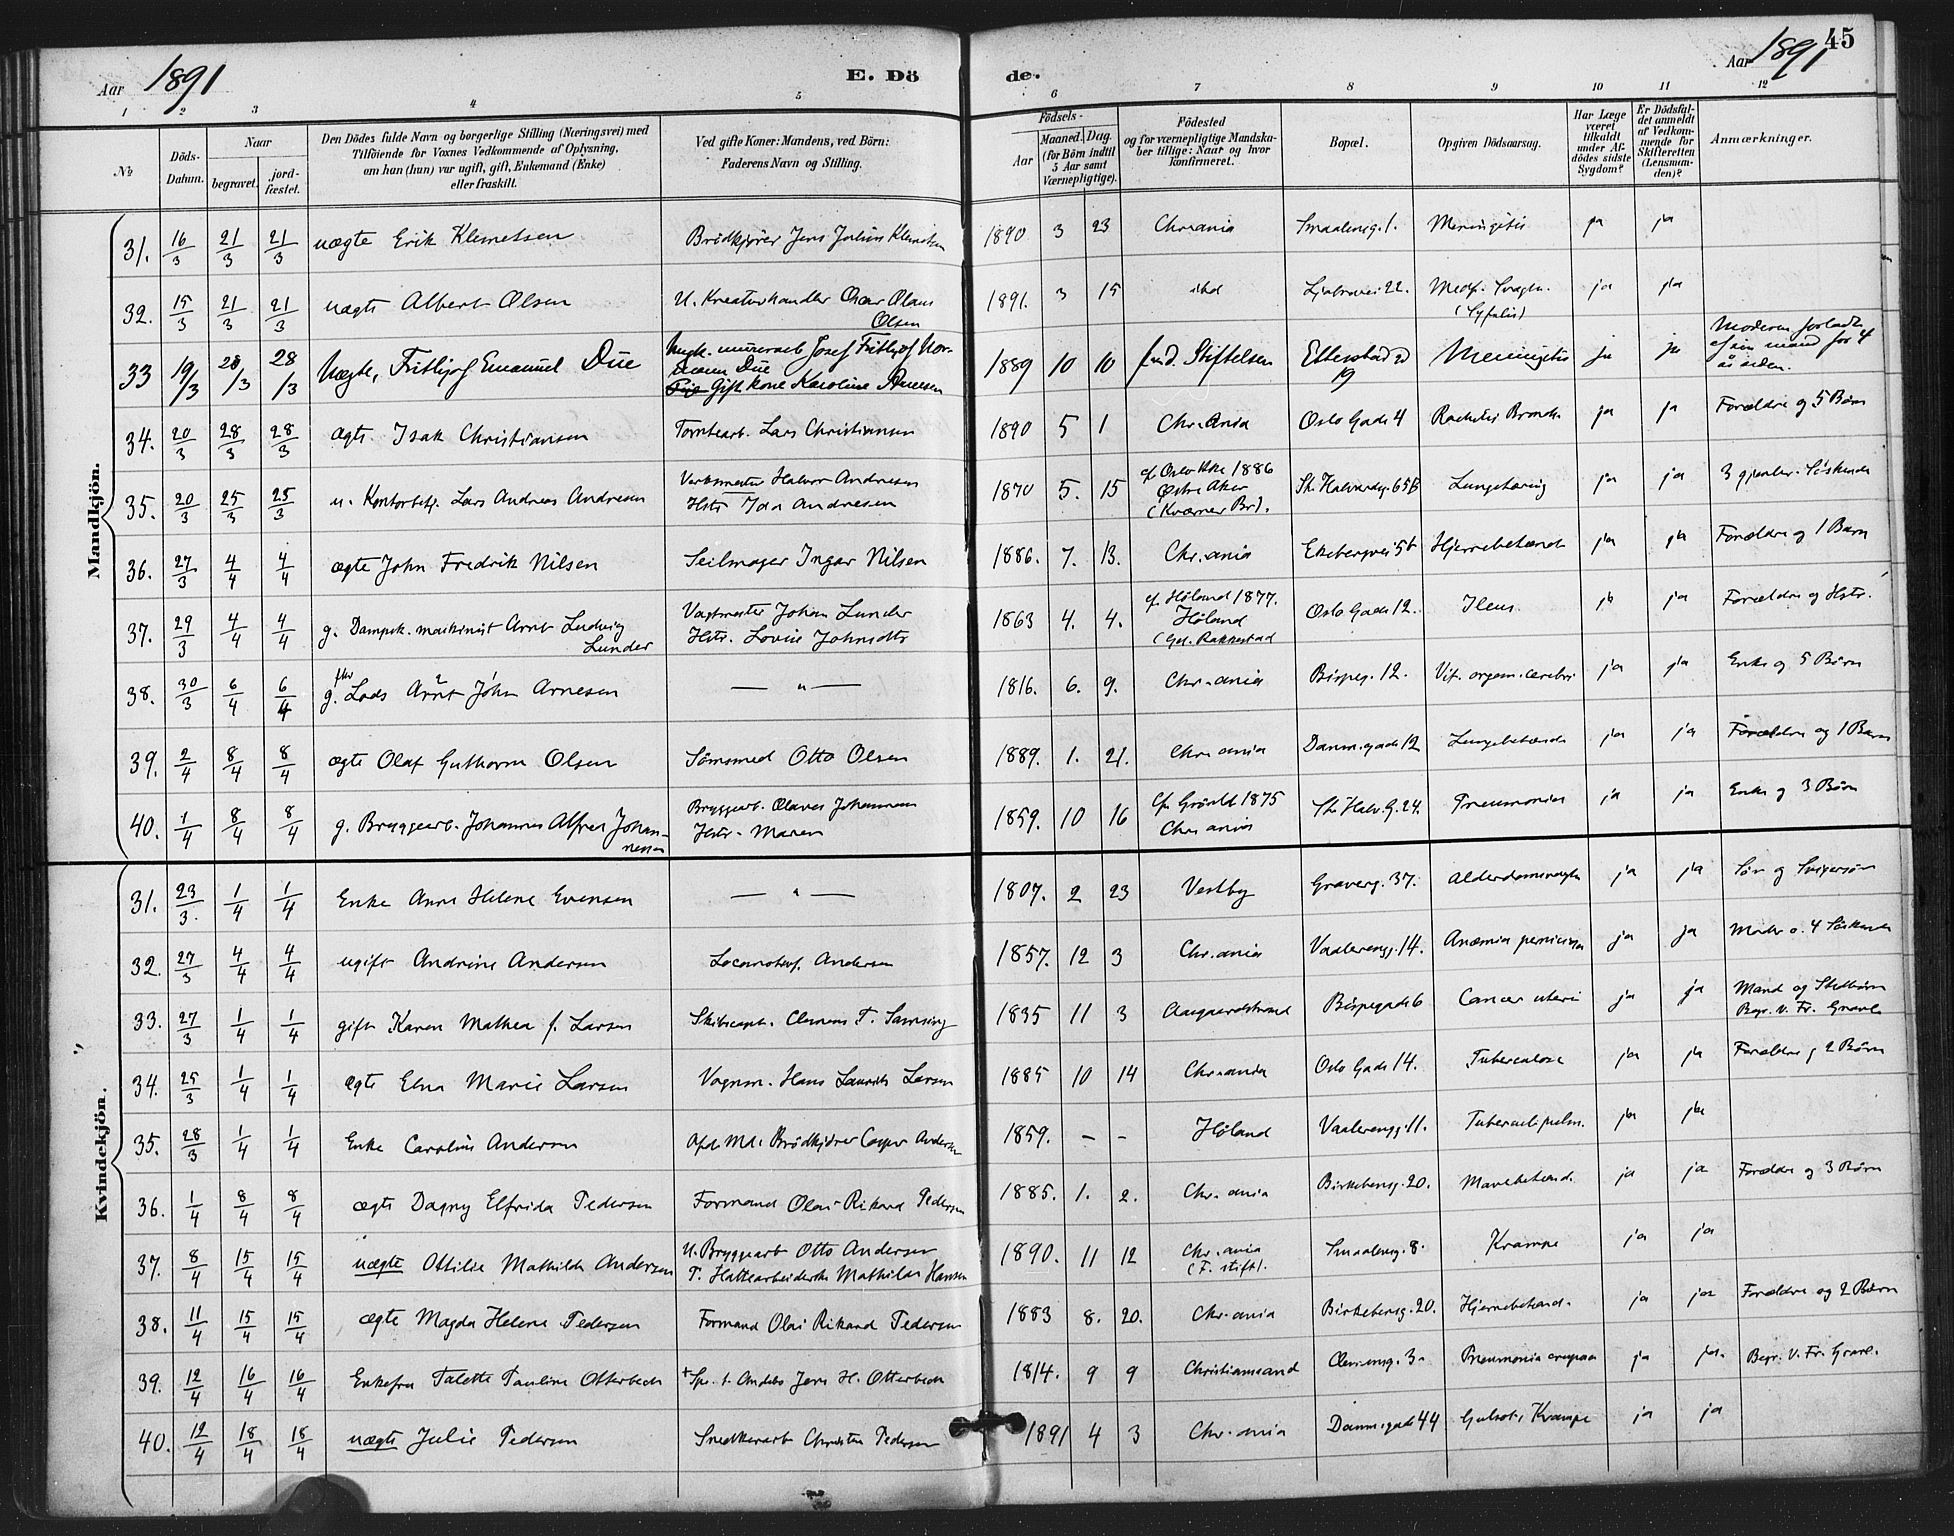 Aar 1891 E. Dö de. Aar 1891 45
1 2 3 4 5 6 7 8 9 10 11 12
№ Döds-Datum. Naar begravet. jord-fæstet. Den Dödes fulde Navn og borgerlige Stilling (Næringsvei) med Tilföiende for Voxnes Vedkommende af Oplysning, om han (hun) var ugift, gift, Enkemand (Enke) eller fraskilt. Ved gifte Koner: Mandens, ved Börn: Faderens Navn og Stilling. Födsels- Aar Maaned. Dag. (for Börn indtil 5 Aar samt Værnepligtige). Födested og for værnepligtige Mandska-ber tillige: Naar og hvor konfirmeret. Bopæl. Opgiven Dödsaarsag. Har Læge været tilkaldt under Af-dödes sidste Sygdom? Er Dödsfal-det anmeldt af Vedkom-mende for Skifteretten (Lensman-den)? Anmærkninger.
Mandkjön.
31. 16/3 21/3 21/3 uægte Erik Klemetsen Brødkjører Jens Julius Klemetsen 1890 3 23 Chr.ania Smaalensg. 1. Meningitis ja ja
32. 15/3 21/3 21/3 uægte Albert Olsen U. Kreaturhandler Oscar Olaus Olsen 1891. 3 15 ibd Ljabrovei 22. Medf. Svagh. (Syfilis) ja ja
33 19/3 28/3 28/3 Uægte, Frithjof Emanuel Due murerarb Josef Frithjof Due Gift kone Karoline 1889 10 10 fød. Stiftelsen Etterstad 19 Meningitis ja ja Moderen forladt af sin mand for 4 år siden.
34. 20/3 28/3 28/3 ægte Isak Christiansen Tomtearb. Lars Christiansen 1890 5 1 Chr.ania Oslo Gade 4 Rachitis Bronch. ja ja Forældre og 5 Børn
35. 20/3 25/3 25/3 u. Kontorbetj. Lars Andreas Andresen Verksmester Halvor Andresen Hstr Ida Andresen 1870 5. 15 cf. Oslo Kke 1886 Østre Aker (Kværner Br). St. Halvardsg. 65B Lungetæring ja ja 3 gjenlev. Søskende
36. 27/3 4/4 4/4 ægte John Fredrik Nilsen Seilmager Ingar Nilsen 1886. 7. 13. Chr.ania Ekebergvei 5b Hjernebetænd. ja ja Forældre og 1 Barn
37. 29/3 4/4 4/4 g. Dampsk. maskinist Arnt Ludvig Lunder Vagtmester Johan Lunder Hstr. Lovise Johnsdtr 1863 4. 4. cf. Høland 1877. Høland (Gd. Rakkestad Oslo Gade 12. Ileus. ja ja Forældre og Hstr.
38. 30/3 6/4 6/4 g. fhv Lods Arnt John Arnesen — " — 1816. 6. 9. Chr.ania Bispeg. 12. Vit. organ. cerebri ja ja Enke og 5 Børn
39. 2/4 8/4 8/4 ægte Olaf Guthorm Olsen Sømsmed Otto Olsen 1889. 1. 21. Chr.ania Danm.gade 12 Lungebetænd. ja ja Forældre og 1 Barn
40. 1/4 8/4 8/4 g. Bryggearb. Johannes Alfred Johan-nessen Bryggearb. Olaves Johannesen Hstr. Maren 1859. 10 16 cf. Grønld 1875 Chr.ania St. Halv. G. 24. Pneumonia ja ja Enke og 3 Børn
Kvindekjön.
31. 23/3. 1/4 1/4 Enke Anne Helene Evensen — " — 1807. 2 23 Vestby Graverg. 37. Alderdomssvaghed ja ja Søn og Svigersøn
32. 27/3 4/4 4/4 ugift Andrine Andersen Locomotivf. Andersen 1857. 12 3 Chr.ania Vaalerengg. 14. Anæmia perniciosa ja ja Moder o. 4 Søskende
33. 27/3 1/4 1/4 gift Karen Mathea f. Larsen Skibscapt. Clemens T. Samsing 1835 11 3 Aasgaardstrand Bispegade 6 Cancer uteri ja ja Mand og Stedbørn Begr. v. Fr. Gravl.
34. 25/3 1/4 1/4 ægte Elna Marie Larsen Vognm. Hans Laurits Larsen 1885 10 14 Chr.ania Oslo Gade 14. Tuberculose ja ja Forældre og 2 Børn
35. 28/3 1/4 1/4 Enke Caroline Andersen Afd. Md. Brødkjører Casper Andersen 1859. – – Høland Vaalerengg. 11. Tubercul. pulm. ja ja
36. 1/4 8/4 8/4 ægte Dagny Elfrida Pedersen Formand Olai Rikard Pedersen 1885. 1. 2. Chr.ania Birkebeng. 20. Mavebetænd. ja ja Forældre og 3 Børn
37. 8/4 15/4 15/4 uægte Ottilie Mathilde Andersen U. Bryggearb Otto Andersen P. Hattearbeiderske Mathilde Hansen 1890. 11 12 Chr.ania (F. stift). Smaalensg. 8. Krampe ja ja
38. 11/4 15/4 15/4 ægte Magda Helene Pedersen Formand Olai Rikard Pedersen 1883 8. 20. Chr.ania Birkebeng. 20. Hjernebetænd. ja ja Forældre og 2 Børn
39. 12/4 16/4 16/4 Enkefru Talette Pauline Otterbech Jens H. Otterbech 1814. 9 9 Christianssand Clemensg. 3. Pneumonia crouposa ja ja. Begr. v. Fr. Gravl.
40. 12/4 18/4 18/4 uægte Julie Pedersen Snedkerarb Christen Pedersen 1891 4 3 Chr.ania Danm.gade 44 Gulsot, Krampe ja ja